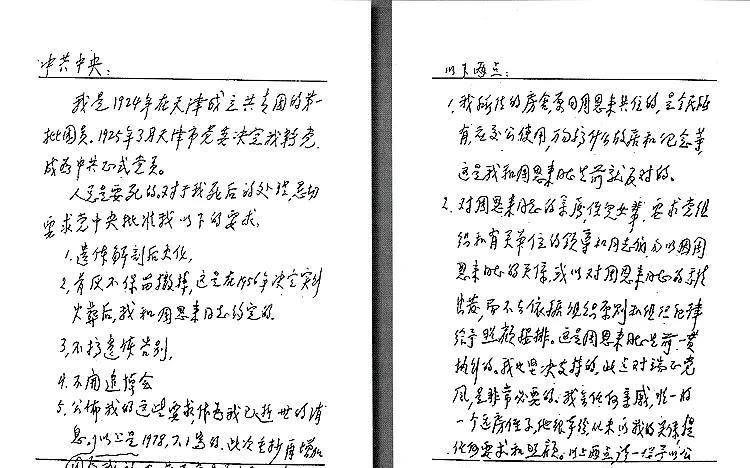 中共中央：
我是1924年在天津成立共青团的第一
批团员。1925年3月天津市党委决定我转党，
成为中共正式党员。
人总是要死的。对于我死后的处理，恳切
要求党中央批准我以下的要求：
1.遗体解剖后火化。
2.骨灰不保留，撒掉，这是在1956年决定实行
火葬后，我和周恩来同志约定的。
3.不搞遗体告别，
4.不开追悼会
5.公佈我的这些要求，作为我已逝世的消
息。以上是1978.7.1写的。此次重抄再增加
以下两点：
1.我所住的房舍，原同周恩来共住的，是全民所
有，应交公使用，万勿搞什么故居和纪念等，
这是我和周恩来同志生前就反对的。
2.对周恩来同志的亲属，侄儿女辈，要求党组
织和有关单位的领导和同志们，勿以因周
恩来同志的关系，或以对周恩来同志的感情
出发，而不去依据组织原则和组织纪律
给予照顾安排。这是周恩来同志生前一贯
执行的。我也坚决支持的。此点对端正党
风，是非常必要的。我无任何亲戚，唯一的
一个远房侄子，他很本份，从未以我的关系提
任何要求和照顾。以上两点请一并予以公